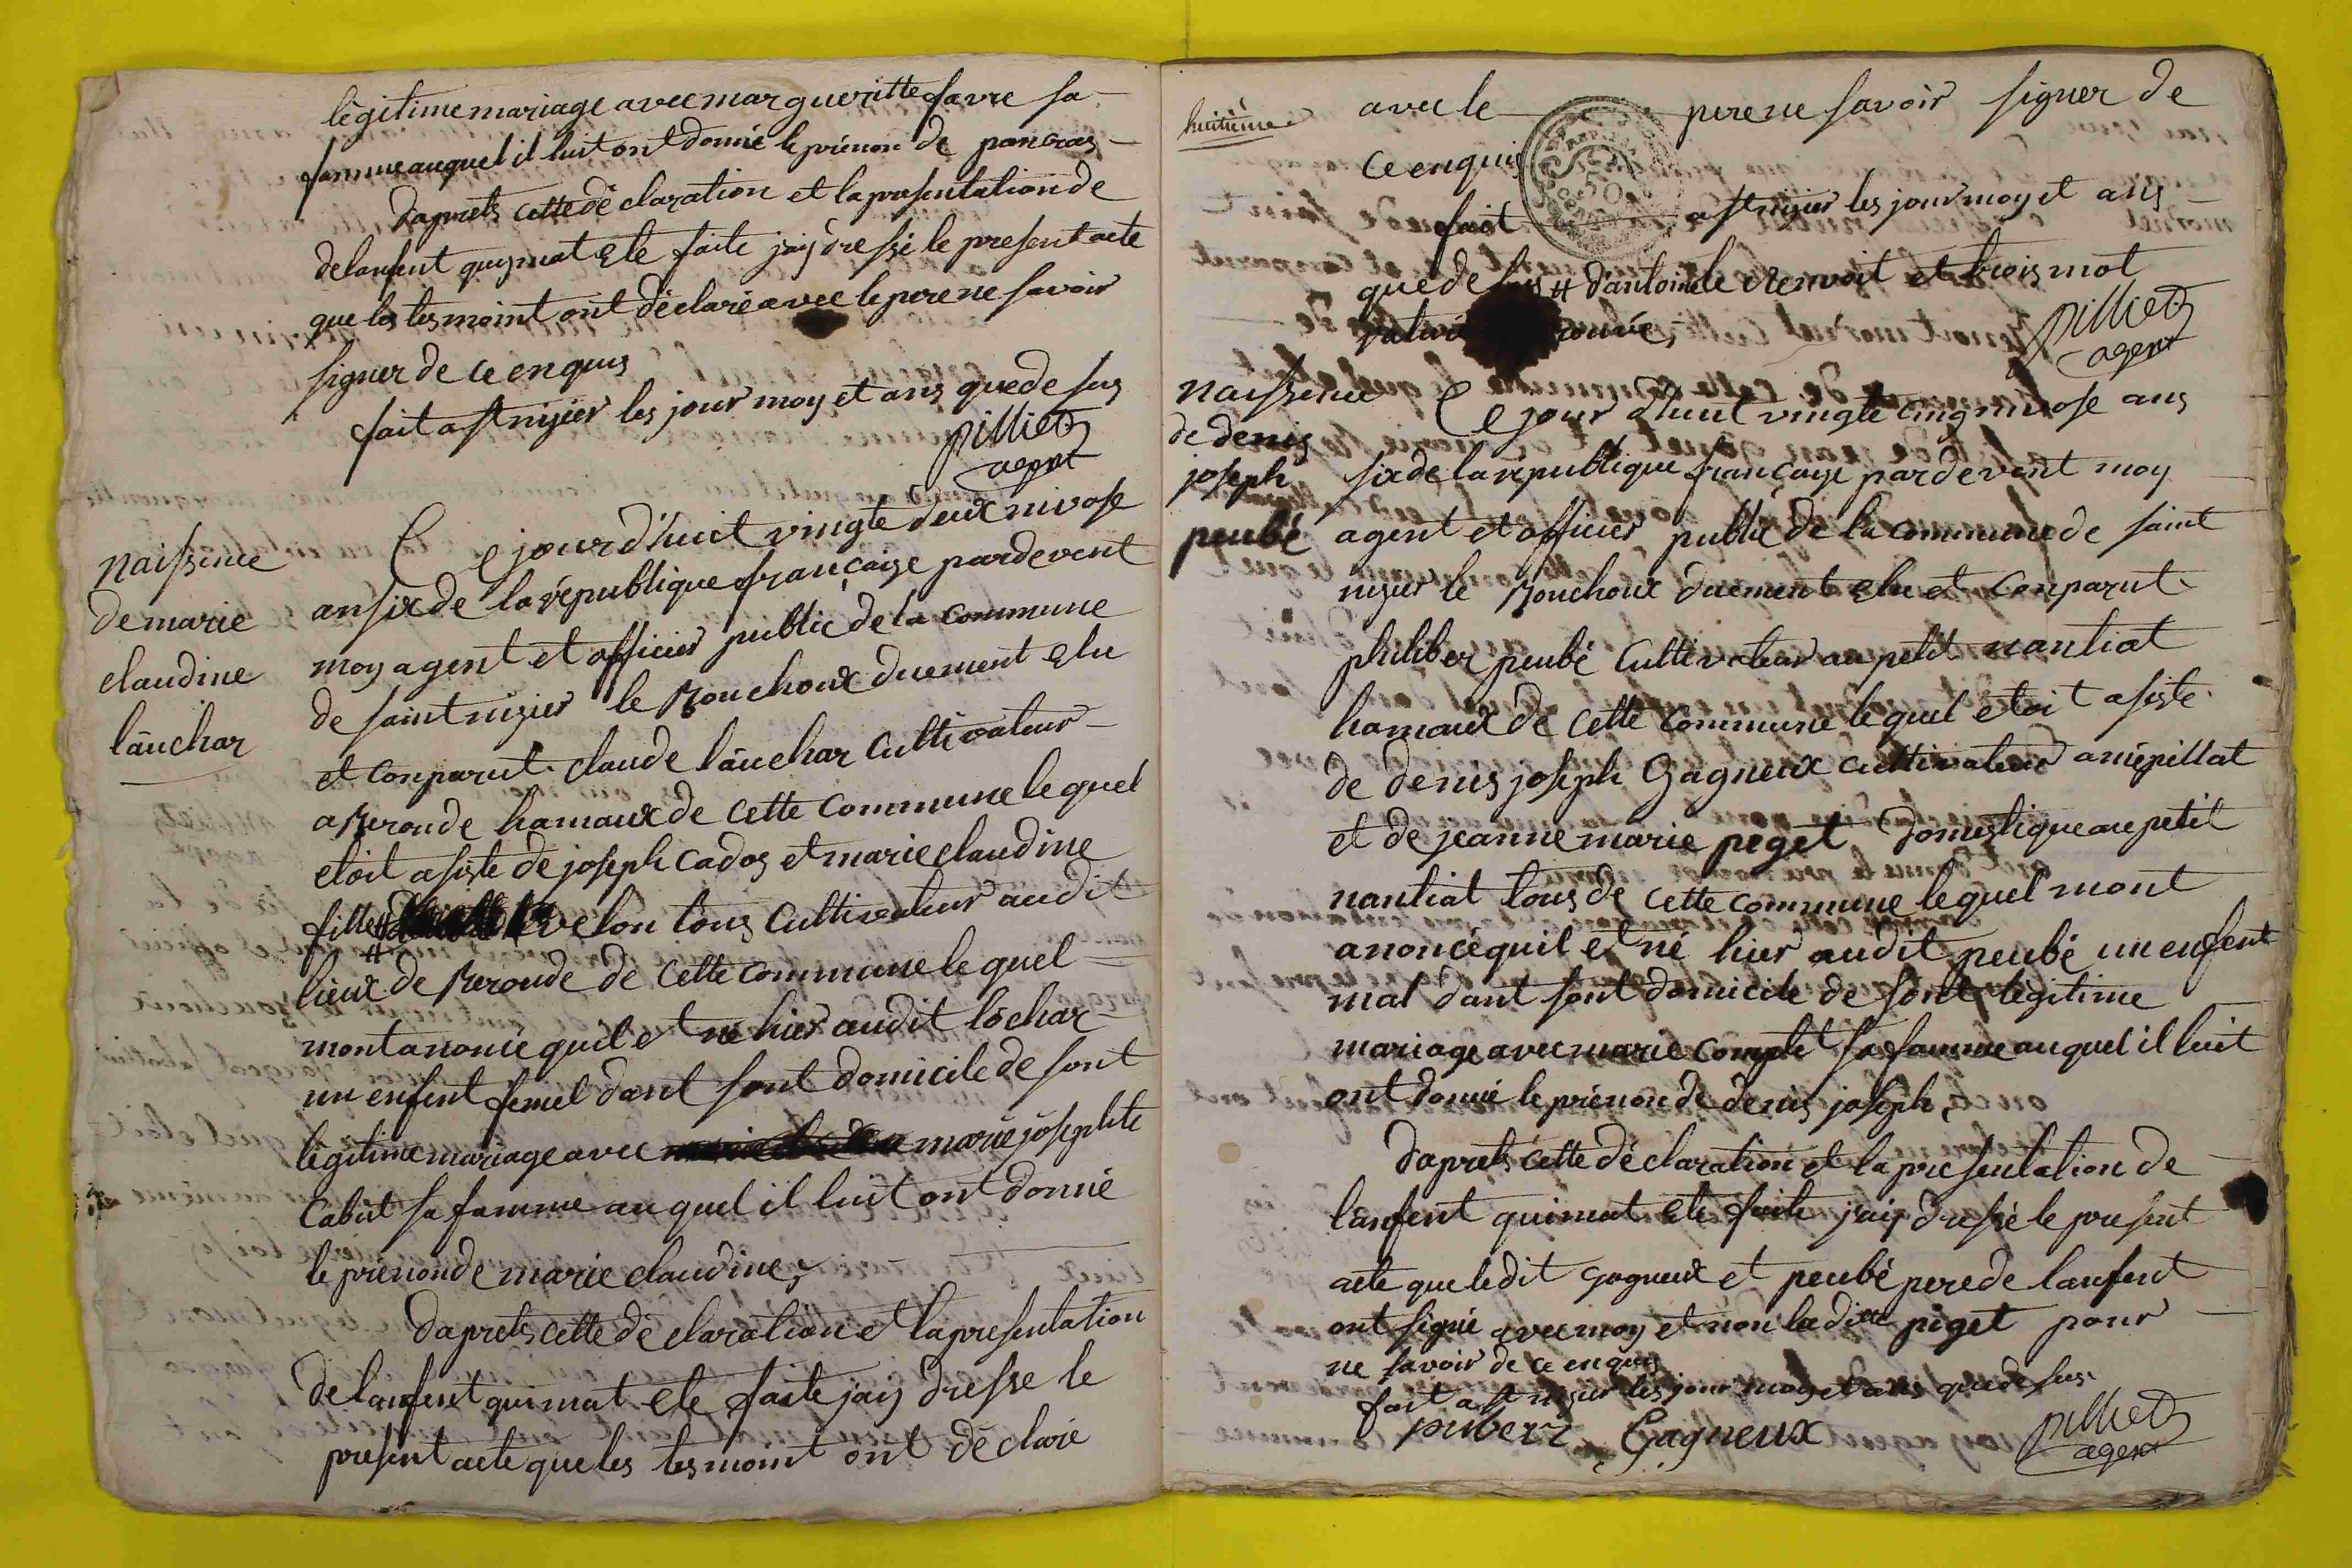 légitime mariage avec margueritte favre sa
famme auquel il luit ont donné le prénon de pancras
daprets cette déclaration et la presentation de
de lanfent quy mat ete faite jaÿ dressé le present acte
que les tesmoint ont déclaré avec le pere ne savoir
signer de ce enquis
fait a st nizier les jour moy et ans que de sus
pilliet
agent
naissence
de marie
claudine
lâuchar
Ce jourd'huit vingte deux nivose
an six de la république française pardevent
moy agent et officier public de la commune
de saint nizier le Bouchoux duement elu
et conparut claude lâuchar cultivateur
a Beronde hamaux de cette commune lequel
etoit asisté de joseph cados et marie claudine
fille # velon tous cultivateur audit
lieux de Beronde de cette commune lequel
mont anoncé quil et né hier audit lochar
un enfent femel dant sont domicile de sont
légitime mariage avec marie josephte
Cabut sa famme au quel il luit ont donné
le prénon de marie claudine
daprets cette déclaration et la presentation
de lanfent qui mat ete faite jaiy dresse le
present acte que les tesmoint ont déclaré
huitième
avec le pere ne savoir signer de
ce enquis
fait a st nizier les jour moy et ans
que de sus # d'antoine le renvoit et trois mot
pilliet
agent
naissence
de denis
joseph
peubé
Ce jour d'huit vingte cinq nivose ans
six de la république françaiçe pardevent moy
agent et officier public de la commune de saint
nizier le Bouchoux duement elu et conparut
philiber peubé cultivateur au petit nantiat
hamaux de cette commune lequel etoit asisté
de denis joseph Gagneux cultivateur a mépillat
et de jeanne marie peget domestique au petit
nantiat tous de cette commune lequel mont
anoncé quil et né hier audit peubé un enfent
mal dant sont domicile de sont legitime
mariage avec marie complet sa famme auquel il luit
ont donné le prénon de denis joseph
daprets cette déclaration et la presentation de
lanfent qui mat ete faite jaiy dressé le present
acte que ledit gagneux et peubé pere de lanfent
ont signé avec moy et non la ditte piget pour
ne savoir de ce enquis
fait a st nizier les jour moy et ans que de sus
Gagneux
pilliet
agent